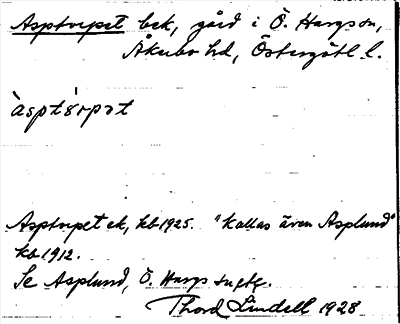 Asptorpet bek, gård i Ö. Hargs sn,
Åkerbo hd, Östergötl. l.
àsptórpət
Asptorpet ek, kb 1925. "Kallas även Asplund"
kb 1912.
Se Asplund, Ö. Hargs
Thord Lindell 1928